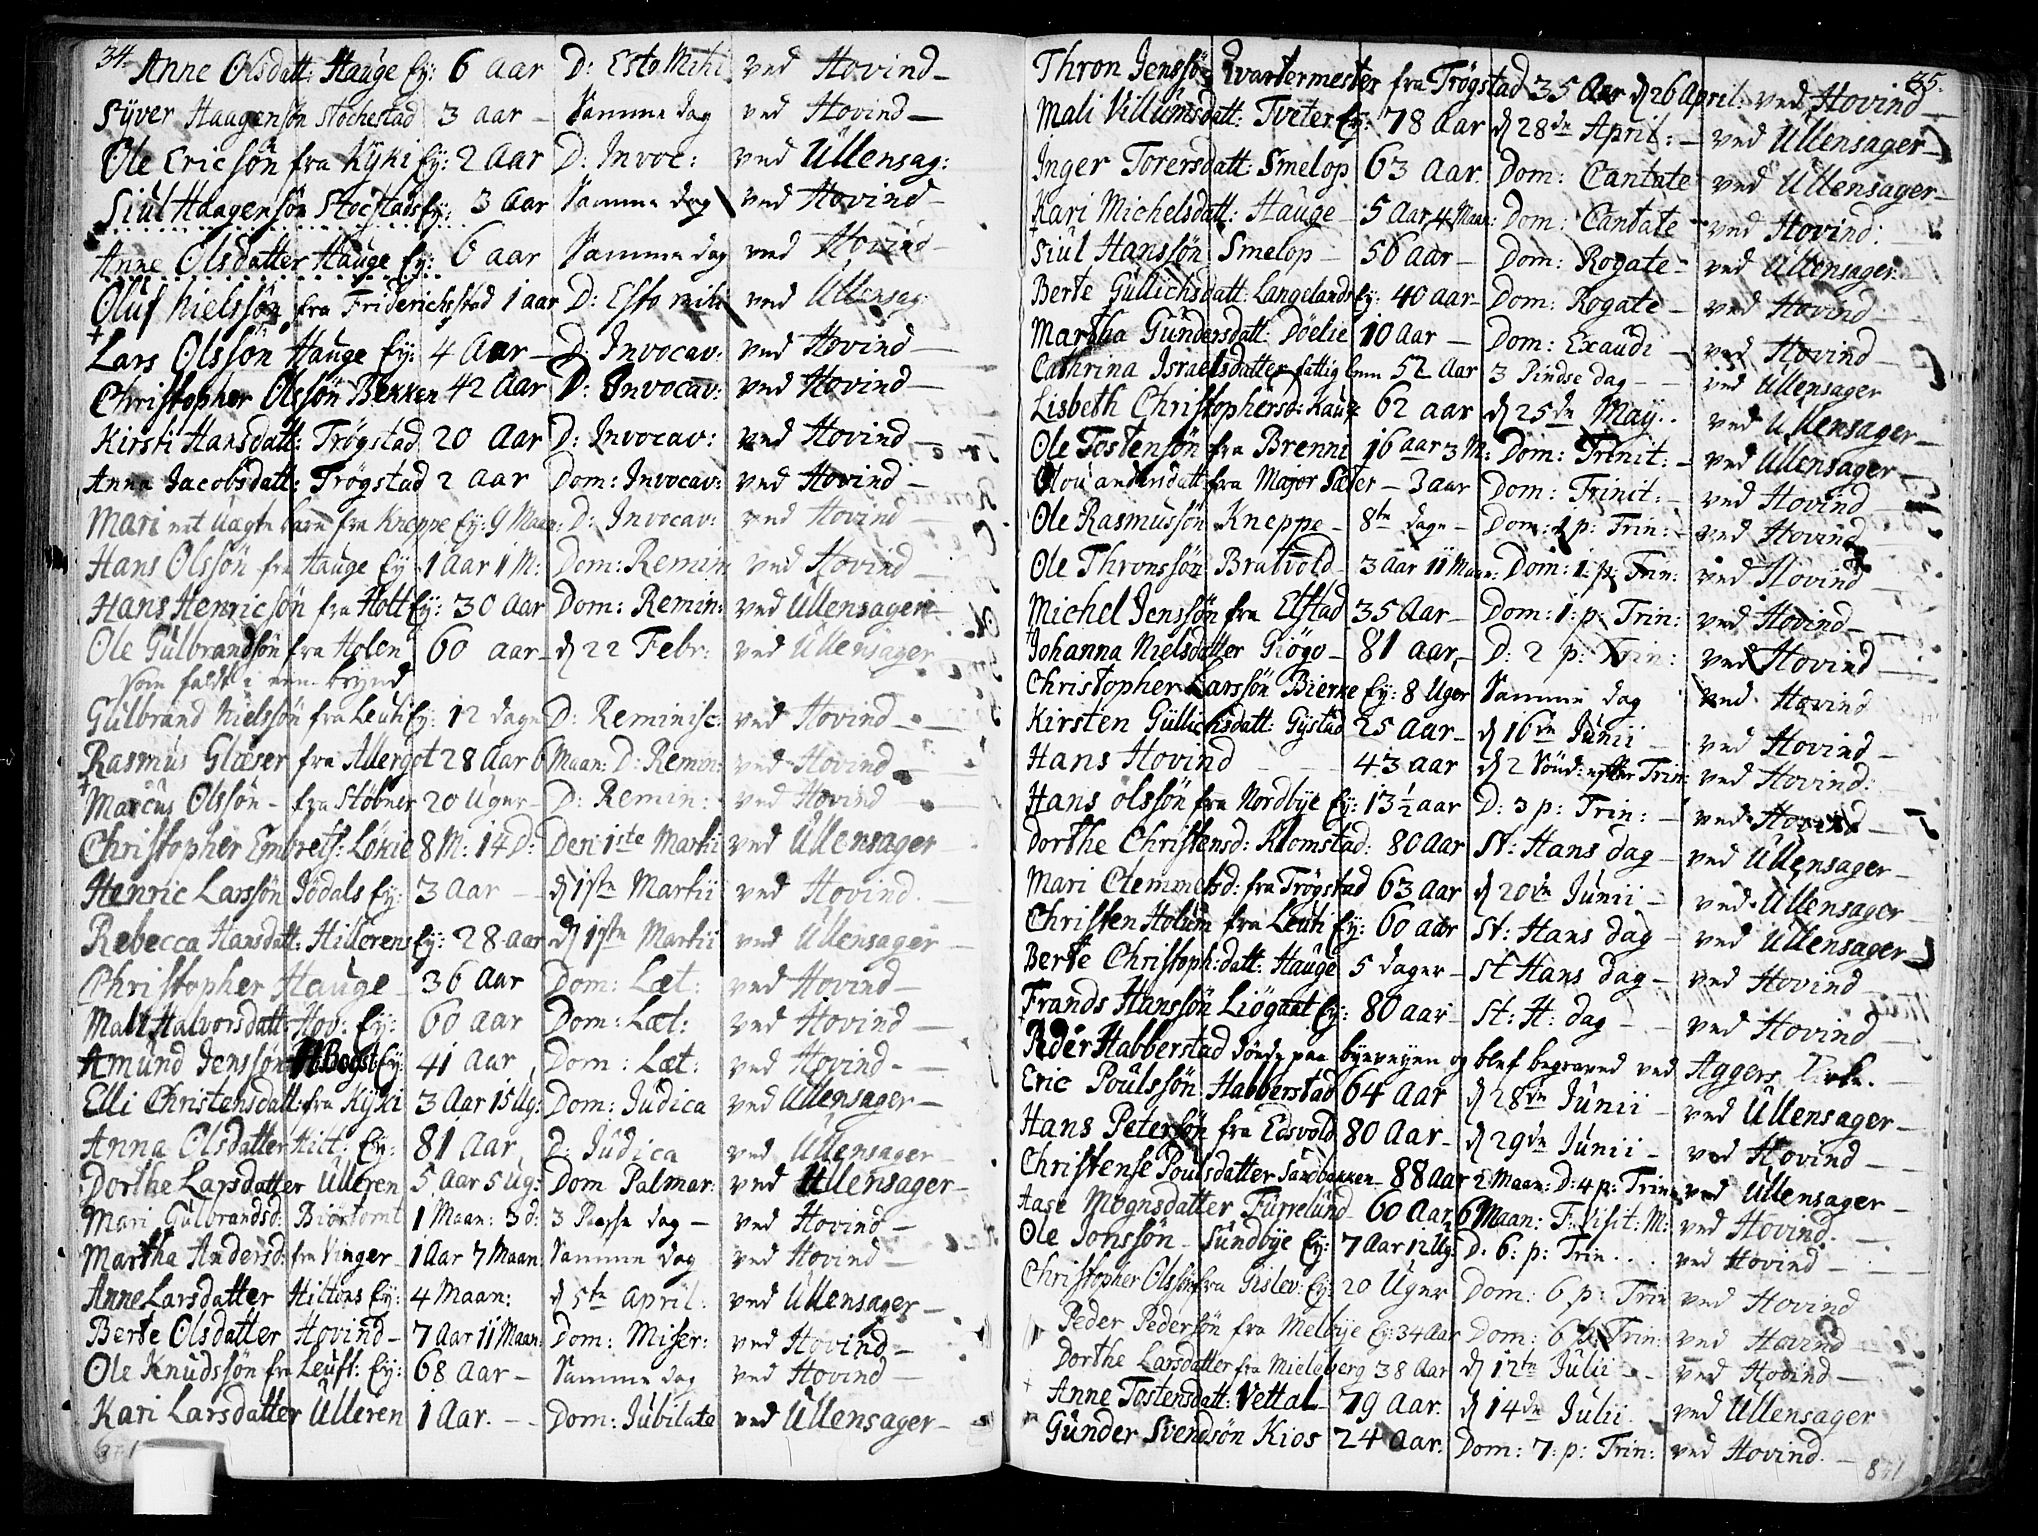 34.
Anne Olsdatt: Hauge Ey: 6 aar D: Esto Mihi ved Hovind
Syver Haagensøn Stochestad 3 aar Samme dag ved Hovind
Ole Ericsøn fra Kyki Ey: 2 Aar D: Invoc: ved Ullensag:
Siul Haagensøn Stocstads Ey: 3 Aar Samme dag ved Hovind
Anne Olsdatter Hauge Ey: 6 aar Samme dag ved Hovind
Oluf Nielssøn fra Friderichstad 1 aar D: Esto mihi ved Ullensag:
Lars Olssøn Hauge Ey: 4 Aar D: Invocav: ved Hovind
Christopher Olssøn Bekken 42 Aar D: Invocav: ved Hovind
Kirsti Hansdatt: Trøgstad 20 Aar D: Invocav: ved Hovind
Anna Jacobsdatt: Trøgstad 2 aar Dom: Invocav: ved Hovind
Mari et uægte barn fra Kneppe Ey: 9 Maan: D: Invocav: ved Hovind
Hans Olssøn fra Hauge Ey 1 Aar 1 M: Dom: Remin: ved Hovind
Hans Henricsøn fra Holt Ey: 30 Aar Dom: Remin: ved Ullensager
Ole Gulbrandsøn fra Holen 60 aar d 22 Febr: ved Ullensager
som faldt i een brynd
Gulbrand Nielssøn fra Leuti Ey: 12 dage D: Reminisc: ved Hovind
Rasmus Glæser fra Allergot 28 Aar 6 Maan: D: Remin: ved Hovind
Marcus Olssøn fra Støbner 20 Uger D: Remin: ved Hovind
Christopher Embrets: Løkie 8 M: 14 D: Den 1ste Martii ved Ullensager
Henric Larssøn Jødals Ey: 3 Aar d 1ste Martii ved Hovind.
Rebecca Hansdatt: Hillerens Ey: 28 Aar d 1ste Martii ved Ullensager
Christopher Hauge 36 Aar Dom: Læt: ved Hovind
Mali Halvorsdatt: Hov: Ey: 60 aar Dom: Læt: ved Hovind
Amund Jenssøn Bogst Ey: 41 aar Dom: Læt: ved Hovind
Elli Christensdatt: fra Kyki 3 Aar 15 Ug: Dom: Judica ved Ullensager
Anna Olsdatter Hilt: Ey: 81 Aar D: Judica ved Ullensager
Dorthe Larsdatter Ulleren 5 Aar 5 ug: Dom Palmar: ved Ullensager
Mari Gulbrandsd: Biørtomt 1 Maan: 3 d: 3 Paaske dag ved Hovind
Martha Andersd: fra Vinger 1 Aar 7 Maan: Samme dag ved Hovind
Anne Larsdatter Hiltons Ey: 4 Maan: d 5te April: ved Ullensager
Berte Olsdatter Hovind 7 Aar 11 Maan: Dom: Miser: ved Hovind
Ole Knudssøn fra Leuft: Ey: 68 Aar Samme dag ved Hovind
Kari Larsdatter Ulleren 1 Aar. Dom: Jubilate ved Ullensager
35.
Thron Jenssøn Qvartermester fra Trøgstad 35 Aar d 26 April: ved Hovind
Mali Villumsdatt: Tveter Ey: 78 Aar d 28de April: ved Ullensager
Inger Torersdatt: Smelop 63 Aar. Dom: Cantate ved Ullensager
Kari Michelsdatt: Hauge 5 Aar 4 Maan: Dom: Cantate ved Hovind:
Siul Hanssøn Smelop 56 aar Dom: Rogate ved Ullensager
Berte Gullichsdatt: Langelands Ey: 40 aar Dom: Rogate ved Hovind
Martha Gundersdatt: Døelie 10 Aar Dom: Exaudi ved Hovind
Cathrina Israelsdatter fattig lem 52 Aar 3 Pindse dag ved Ullensager
Lisbeth Christophersd: Hauge 62 aar d 25de May. ved Ullensager
Ole Tostensøn fra Brenni 16 aar 3 M: Dom: Trinit: ved Ullensager
Olou andersdatt fra Major Sæter 3 aar Dom: Trinit: ved Hovind
Ole Rasmussøn Kneppe 8te dage Dom: 1 p: Trin: ved Hovind
Ole Thronssøn Bratvold 3 aar 11 Maan: Dom: 1: p: Trin: ved Hovind
Michel Jenssøn fra Elstad 35 Aar Dom: 1: p: Trin: ved Hovind
Johanna Nielsdatter Giøgo 81 aar D: 2 p: Trin: ved Hovind
Christopher Larssøn Bierke Ey: 8 Uger Samme dag ved Hovind
Kirsten Gullichsdatt: Gystad 25 Aar d 16de Junii ved Hovind
Hans Hovind 43 aar d 2 Sönd: efter Trin: ved Hovind:
Hans olssøn fra Nordbye Ey: 13 1/2 aar D: 3 p: Trin: ved Hovind
Dorthe Christensd: Klomstad: 80 Aar St: Hans dag ved Ullensager
Mari Clemmetsd: fra Trøgstad 63 Aar d 20de Junii ved Ullensager
Christen Holum fra Leuti Ey: 60 aar St: Hans dag ved Ullensager
Berte Christoph:datt: Hauge 5 dager St Hans dag ved Hovind
Frands Hanssøn Liøgaat Ey: 80 aar St: H: dag ved Hovind
Peder Habberstad døde paa byeveyen og blef begraved ved Aggers Kirke.
Eric Poulssøn Habberstad 64 Aar d 28de Junii ved Ullensager
Hans Petersøn fra Edsvold 80 Aar d 29de Junii ved Hovind
Christense Poulsdatter Sandbakken 88 Aar 2 Maan: D: 4 p: Trin: ved Ullensager
Aase Mognsdatter Furrelund 60 Aar 6 Maan: F: Visit: M: ved Hovind.
Ole Jonssøn Sundbye Ey: 7 Aar 12 Ug: D: 6: p: Trin.. ved Hovind
Christopher Olssøn fra Gislev: Ey: 20 Uger Dom: 6 p: Trin ved Hovind
Peder Pedersøn fra Melbye Ey: 34 Aar Dom: 6 p: Trin: ved Hovind
Dorthe Larsdatter fra Mieleberg 38 Aar d 12te Julii ved Hovind
Anne Tostensdatt: Vettal 79 Aar. d 14de Julii. ved Ullensager
Gunder Svendsøn Kios 24 Aar. Dom: 7: p: Trin: ved Hovind.
871